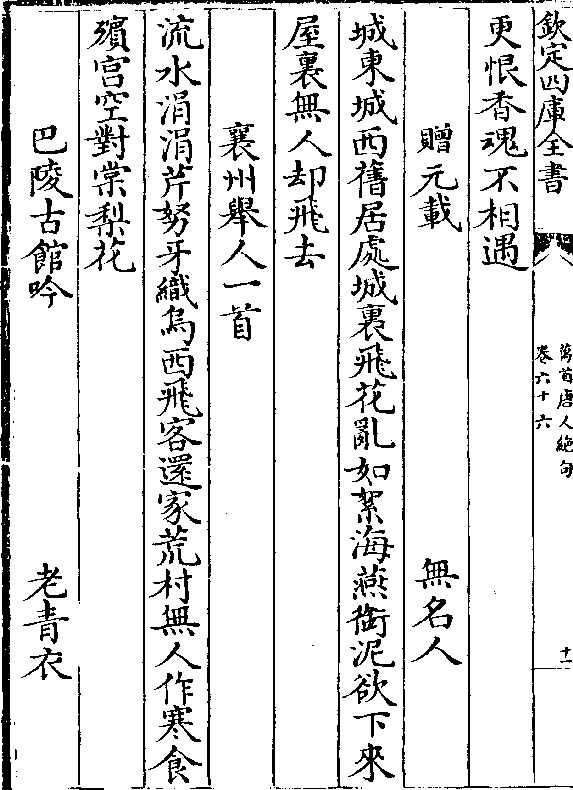 欽定四庫全書
萬首唐人絶句
卷六十六
十一
更恨香魂不相遇
贈元載 無名人
城東城西舊居處城裏飛花亂如絮海燕銜泥欲下來
屋裏無人却飛去
襄州舉人一首
流水涓涓芹努牙織烏西飛客還家荒村無人作寒食
殯宫空對棠梨花
巴陵古館吟 老青衣